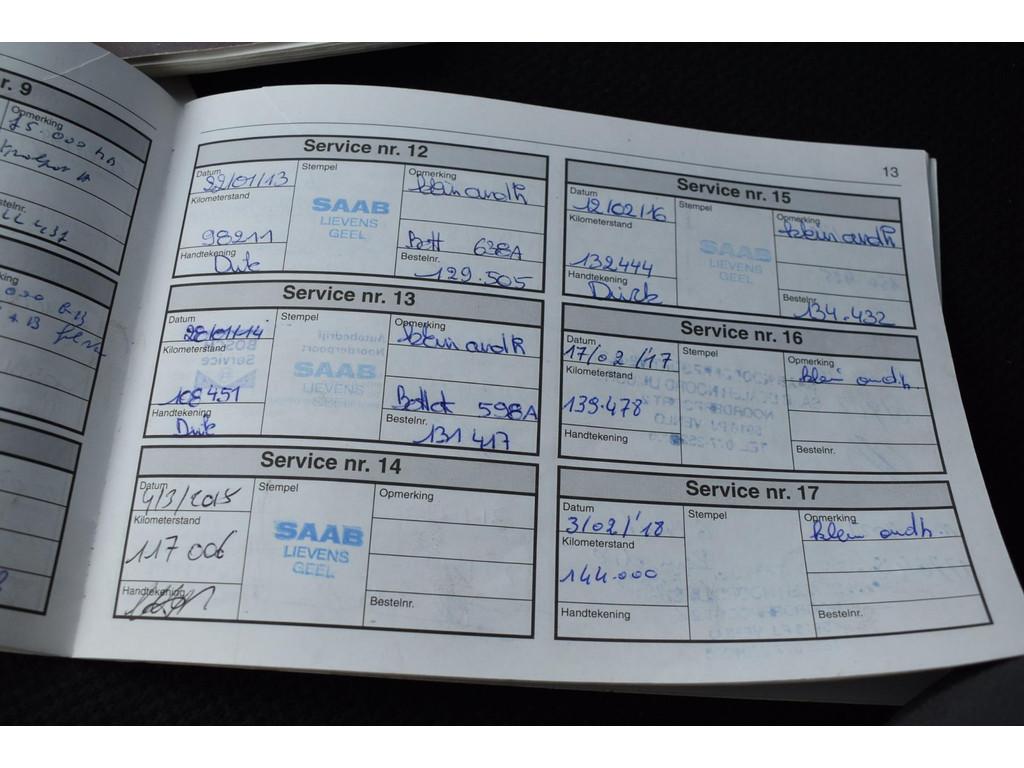 r. 9
Opmerking
75.000 km
stelnr.
13
Service nr. 12
Datum
22/01/13
Kilometerstand
98211
Handtekening
Dirk
Stempel
SAAB
LIEVENS
GEEL
Opmerking
klein ondh
638A
Bestelnr.
129.505
Service nr. 13
Datum
28/01/14
Kilometerstand
108451
Handtekening
Dirk
Stempel
SAAB
LIEVENS
GEEL
Opmerking
klein ondh
598A
Bestelnr.
131417
Service nr. 14
Datum
4/3/2015
Kilometerstand
117 006
Handtekening
Stempel
SAAB
LIEVENS
GEEL
Opmerking
Bestelnr.
Service nr. 15
Datum
12/02/16
Kilometerstand
132444
Handtekening
Dirck
Stempel
SAAB
LIEVENS
GEEL
Opmerking
klein ondh
Bestelnr.
134.432
Service nr. 16
Datum
17/02/'17
Kilometerstand
139.478
Handtekening
Stempel
Opmerking
klein ondh.
Bestelnr.
Service nr. 17
Datum
3/02/'18
Kilometerstand
144.000
Handtekening
Stempel
Opmerking
klein ondh.
Bestelnr.